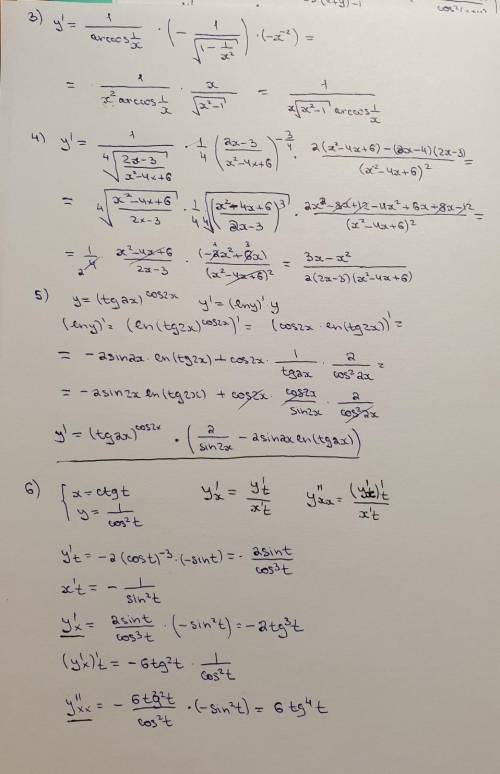 3) y' = 1/(arccos 1/x) · (- 1/√(1 - 1/x²)) · (-x⁻²) =
= 1/(x² arccos 1/x) · x/√(x²-1) = 1/(x√(x²-1) arccos 1/x)
4) y' = 1/⁴√((2x-3)/(x²-4x+6)) · 1/4 ((2x-3)/(x²-4x+6))^(-3/4) · (2(x²-4x+6) - (2x-4)(2x-3))/(x²-4x+6)² =
= ⁴√((x²-4x+6)/(2x-3)) · 1/4 ⁴√((x²-4x+6)/(2x-3))³ · (2x²-8x+12-4x²+6x+8x-12)/(x²-4x+6)² =
= 1/4 · (x²-4x+6)/(2x-3) · (-2x²+6x)/(x²-4x+6)² = (3x-x²)/(2(2x-3)(x²-4x+6))
5) y = (tg2x)^(cos2x) y' = (ln y)' y
(ln y)' = (ln(tg2x)^(cos2x))' = (cos2x · ln(tg2x))' =
= -2sin2x · ln(tg2x) + cos2x · 1/tg2x · 2/cos²2x =
= -2sin2x ln(tg2x) + cos2x · cos2x/sin2x · 2/cos²2x
y' = (tg2x)^(cos2x) · (2/sin2x - 2sin2x ln(tg2x))
6) { x = ctgt y'ₓ = y't/x't y''ₓₓ = (y'ₓ)'t/x't
y = 1/cos²t
y't = -2(cost)⁻³ · (-sint) = 2sint/cos³t
x't = - 1/sin²t
y'ₓ = 2sint/cos³t · (-sin²t) = -2tg³t
(y'ₓ)'t = -6tg²t · 1/cos²t
y''ₓₓ = - 6tg²t/cos²t · (-sin²t) = 6tg⁴t